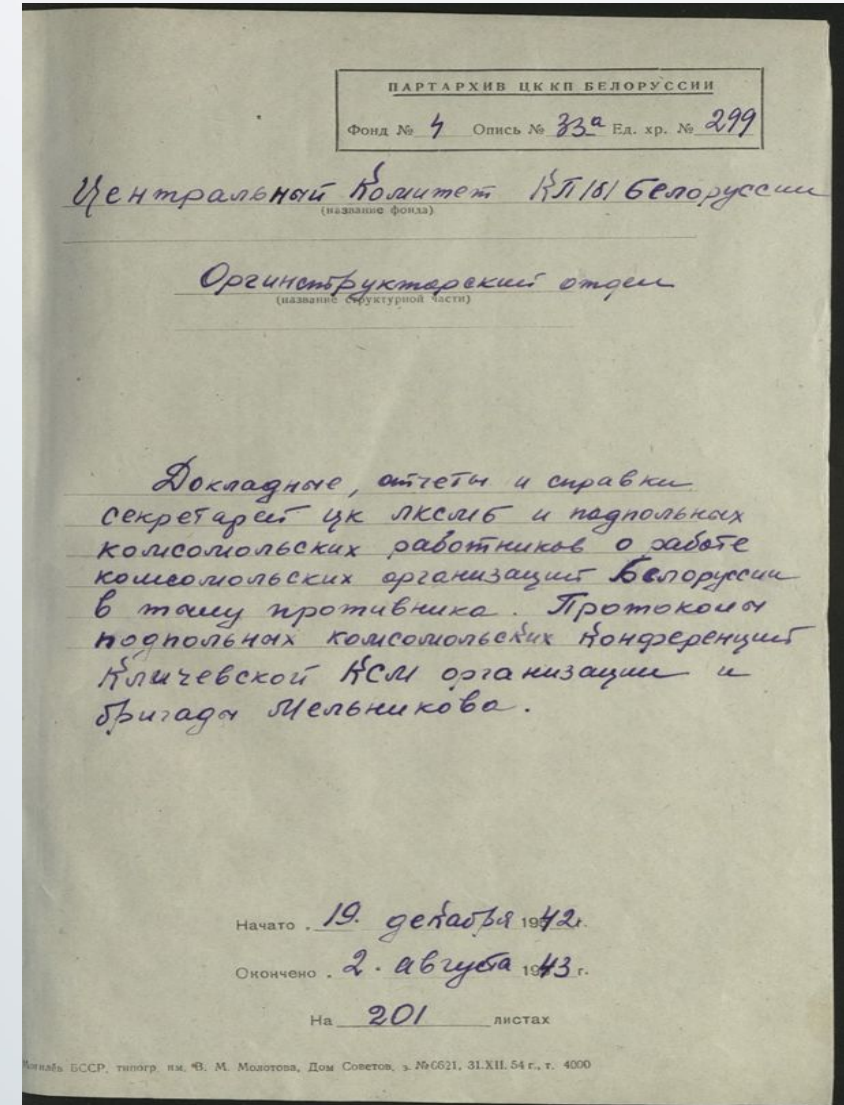 ПАРТАРХИВ ЦК КП БЕЛОРУССИИ
Фонд № 4 Опись № 33а Ед. хр. № 299
Центральный Комитет КП/б/ Белоруссии
(название фонда)
Оргинструкторский отдел
(название структурной части)
Докладные, отчеты и справки
секретарей цк лксмб и подпольных
комсомольских работников о работе
комсомольских организаций Белоруссии
в тылу противника. Протоколы
подпольных комсомольских конференций
Кличевской КСМ организации и
бригады Мельникова.
Начато 19. декабря 1942 г.
Окончено 2. августа 1943 г.
На 201 листах
Могилёв БССР, типогр. им. В. М. Молотова, Дом Советов, з. № 6621, 31.XII. 54 г., т. 4000